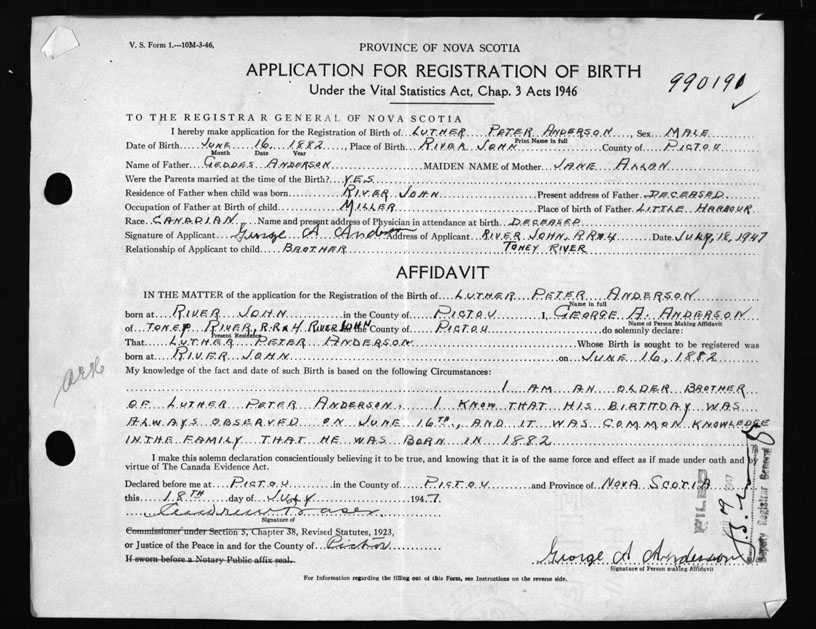 V. S. Form 1.—10M-3-46,
PROVINCE OF NOVA SCOTIA
APPLICATION FOR REGISTRATION OF BIRTH
990191
Under the Vital Statistics Act, Chap. 3 Acts 1946
TO THE REGISTRAR GENERAL OF NOVA SCOTIA
I hereby make application for the Registration of Birth of LUTHER PETER ANDERSON, Sex MALE
Print Name in full
Date of Birth JUNE 16 1882, Place of Birth RIVER JOHN County of PICTOU
Month Date Year
Name of Father GEDDES ANDERSON MAIDEN NAME of Mother JANE ALLAN
Were the Parents married at the time of the Birth? YES
Residence of Father when child was born RIVER JOHN Present address of Father DECEASED
Occupation of Father at Birth of child MILLER Place of birth of Father LITTLE HARBOUR
Race CANADIAN Name and present address of Physician in attendance at birth DECEASED
Signature of Applicant George A Anderson Address of Applicant RIVER JOHN, RR#4 Date JULY, 18, 1947
Relationship of Applicant to child BROTHER TONEY RIVER
AFFIDAVIT
IN THE MATTER of the application for the Registration of the Birth of LUTHER PETER ANDERSON
Name in full
born at RIVER JOHN in the County of PICTOU I, GEORGE A. ANDERSON
Name of Person Making Affidavit
of TONEY RIVER, R.R#4 RIVER JOHN in the County of PICTOU do solemnly declare:
Present Residence
That LUTHER PETER ANDERSON Whose Birth is sought to be registered was
born at RIVER JOHN on JUNE 16, 1882
My knowledge of the fact and date of such Birth is based on the following Circumstances:
I AM AN OLDER BROTHER
OF LUTHER PETER ANDERSON. I KNOW THAT HIS BIRTHDAY WAS
ALWAYS OBSERVED ON JUNE 16TH, AND IT WAS COMMON KNOWLEDGE
IN THE FAMILY THAT HE WAS BORN IN 1882
I make this solemn declaration conscientiously believing it to be true, and knowing that it is of the same force and effect as if made under oath and by
virtue of The Canada Evidence Act.
Declared before me at PICTOU in the County of PICTOU and Province of NOVA SCOTIA
this 18TH day of JULY 1947.
Signature of
Commissioner under Section 5, Chapter 38, Revised Statutes, 1923,
or Justice of the Peace in and for the County of Pictou
If sworn before a Notary Public affix seal.
George A Anderson
Signature of Person making Affidavit
For Information regarding the filling out of this Form, see Instructions on the reverse side.
FILED
Deputy Registrar General